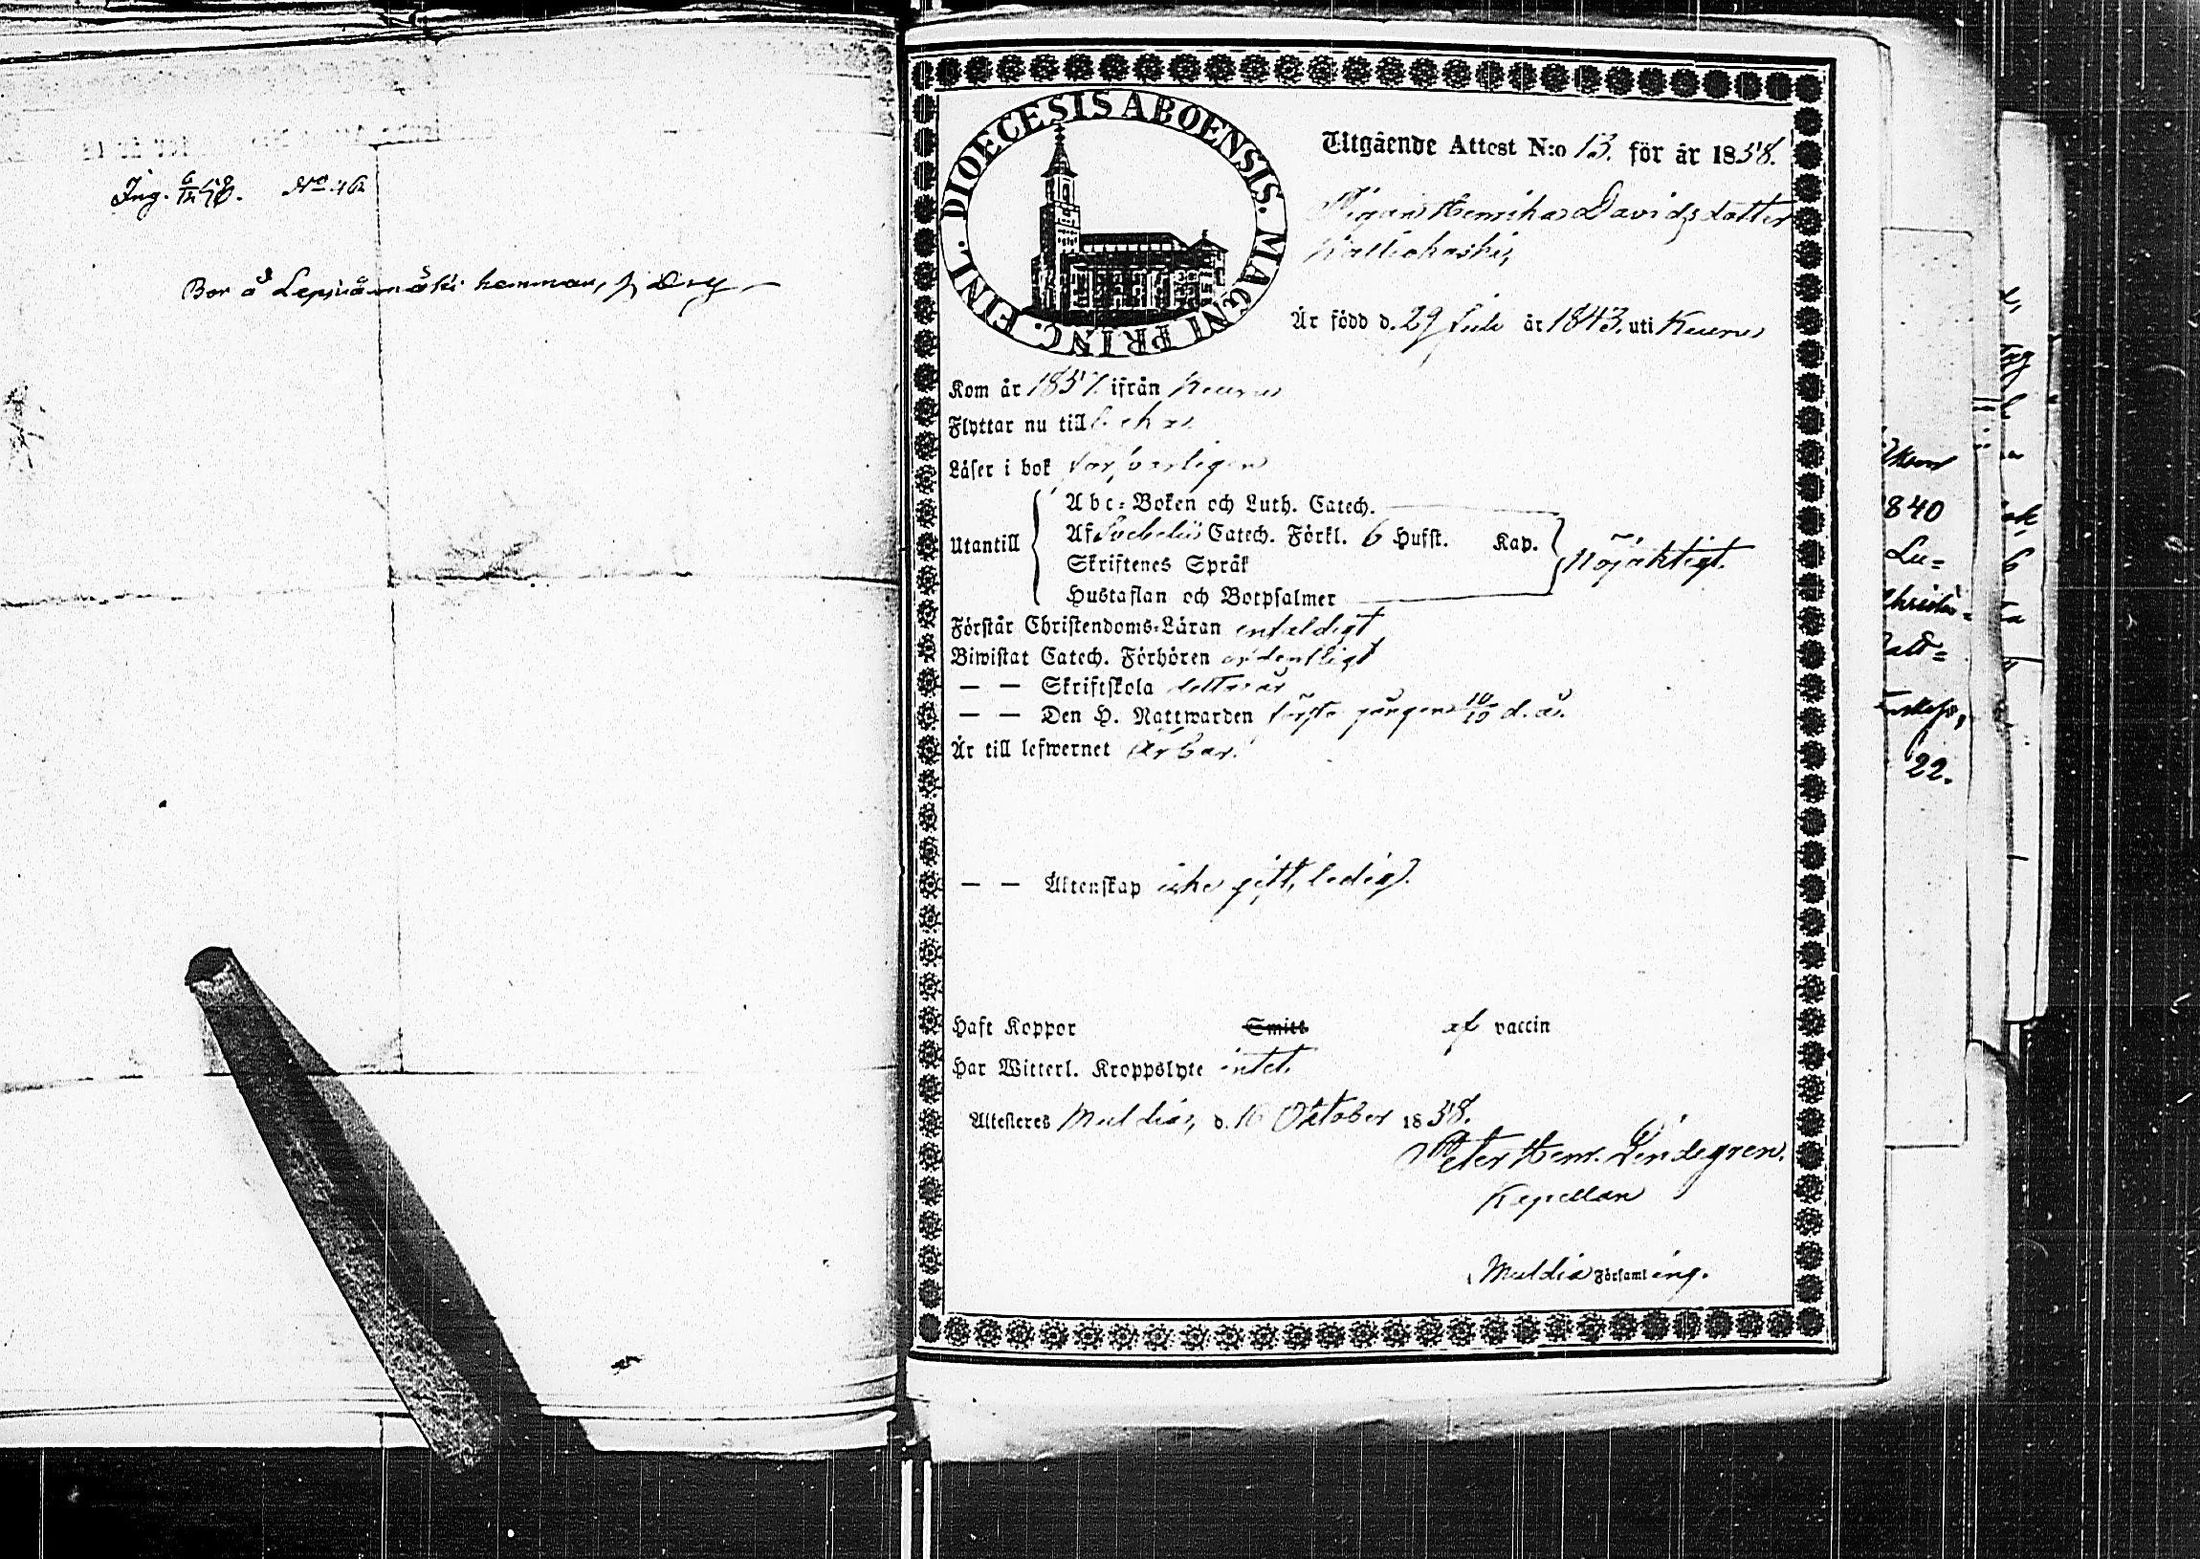 Ing. 6/12 58. No 46
Bor å Lepinämäki hemman,
DIOECESIS ABOENSIS. MAGNI PRINC. FINL.
Utgående Attest N:o 13. för år 1858.
Pigan Henrika Davidsdotter
Kalliokoski,
Är född d. 29 Juli år 1843. uti Keuru
Kom år 1857. ifrån Keuru
Flyttar nu till
Läser i bok försvarligen
Utantill
Abc-Boken och Luth. Catech.
Af Svebelii Catech. Förkl. 6 Hufst. Kap.
Skriftenes Språk
Hustaflan och Botpsalmer
Nöjaktigt.
Förstår Christendoms-Läran enfaldigt
Biwistat Catech. Förhören ordentligt
— — Skriftskola detta år
— — Den H. Nattwarden första gången 10/10 d. å.
Är till lefwernet ärbar.
— — Äktenskap icke gift, ledig.
Haft Koppor Smitt af vaccin
Har Witterl. Kroppslyte intet.
Attesteres Muldia, d. 10 Oktober 1858.
Peter Henr. Lindegren.
Kapellan
Muldia Församling.
1840
Lu=
Christen=
22.